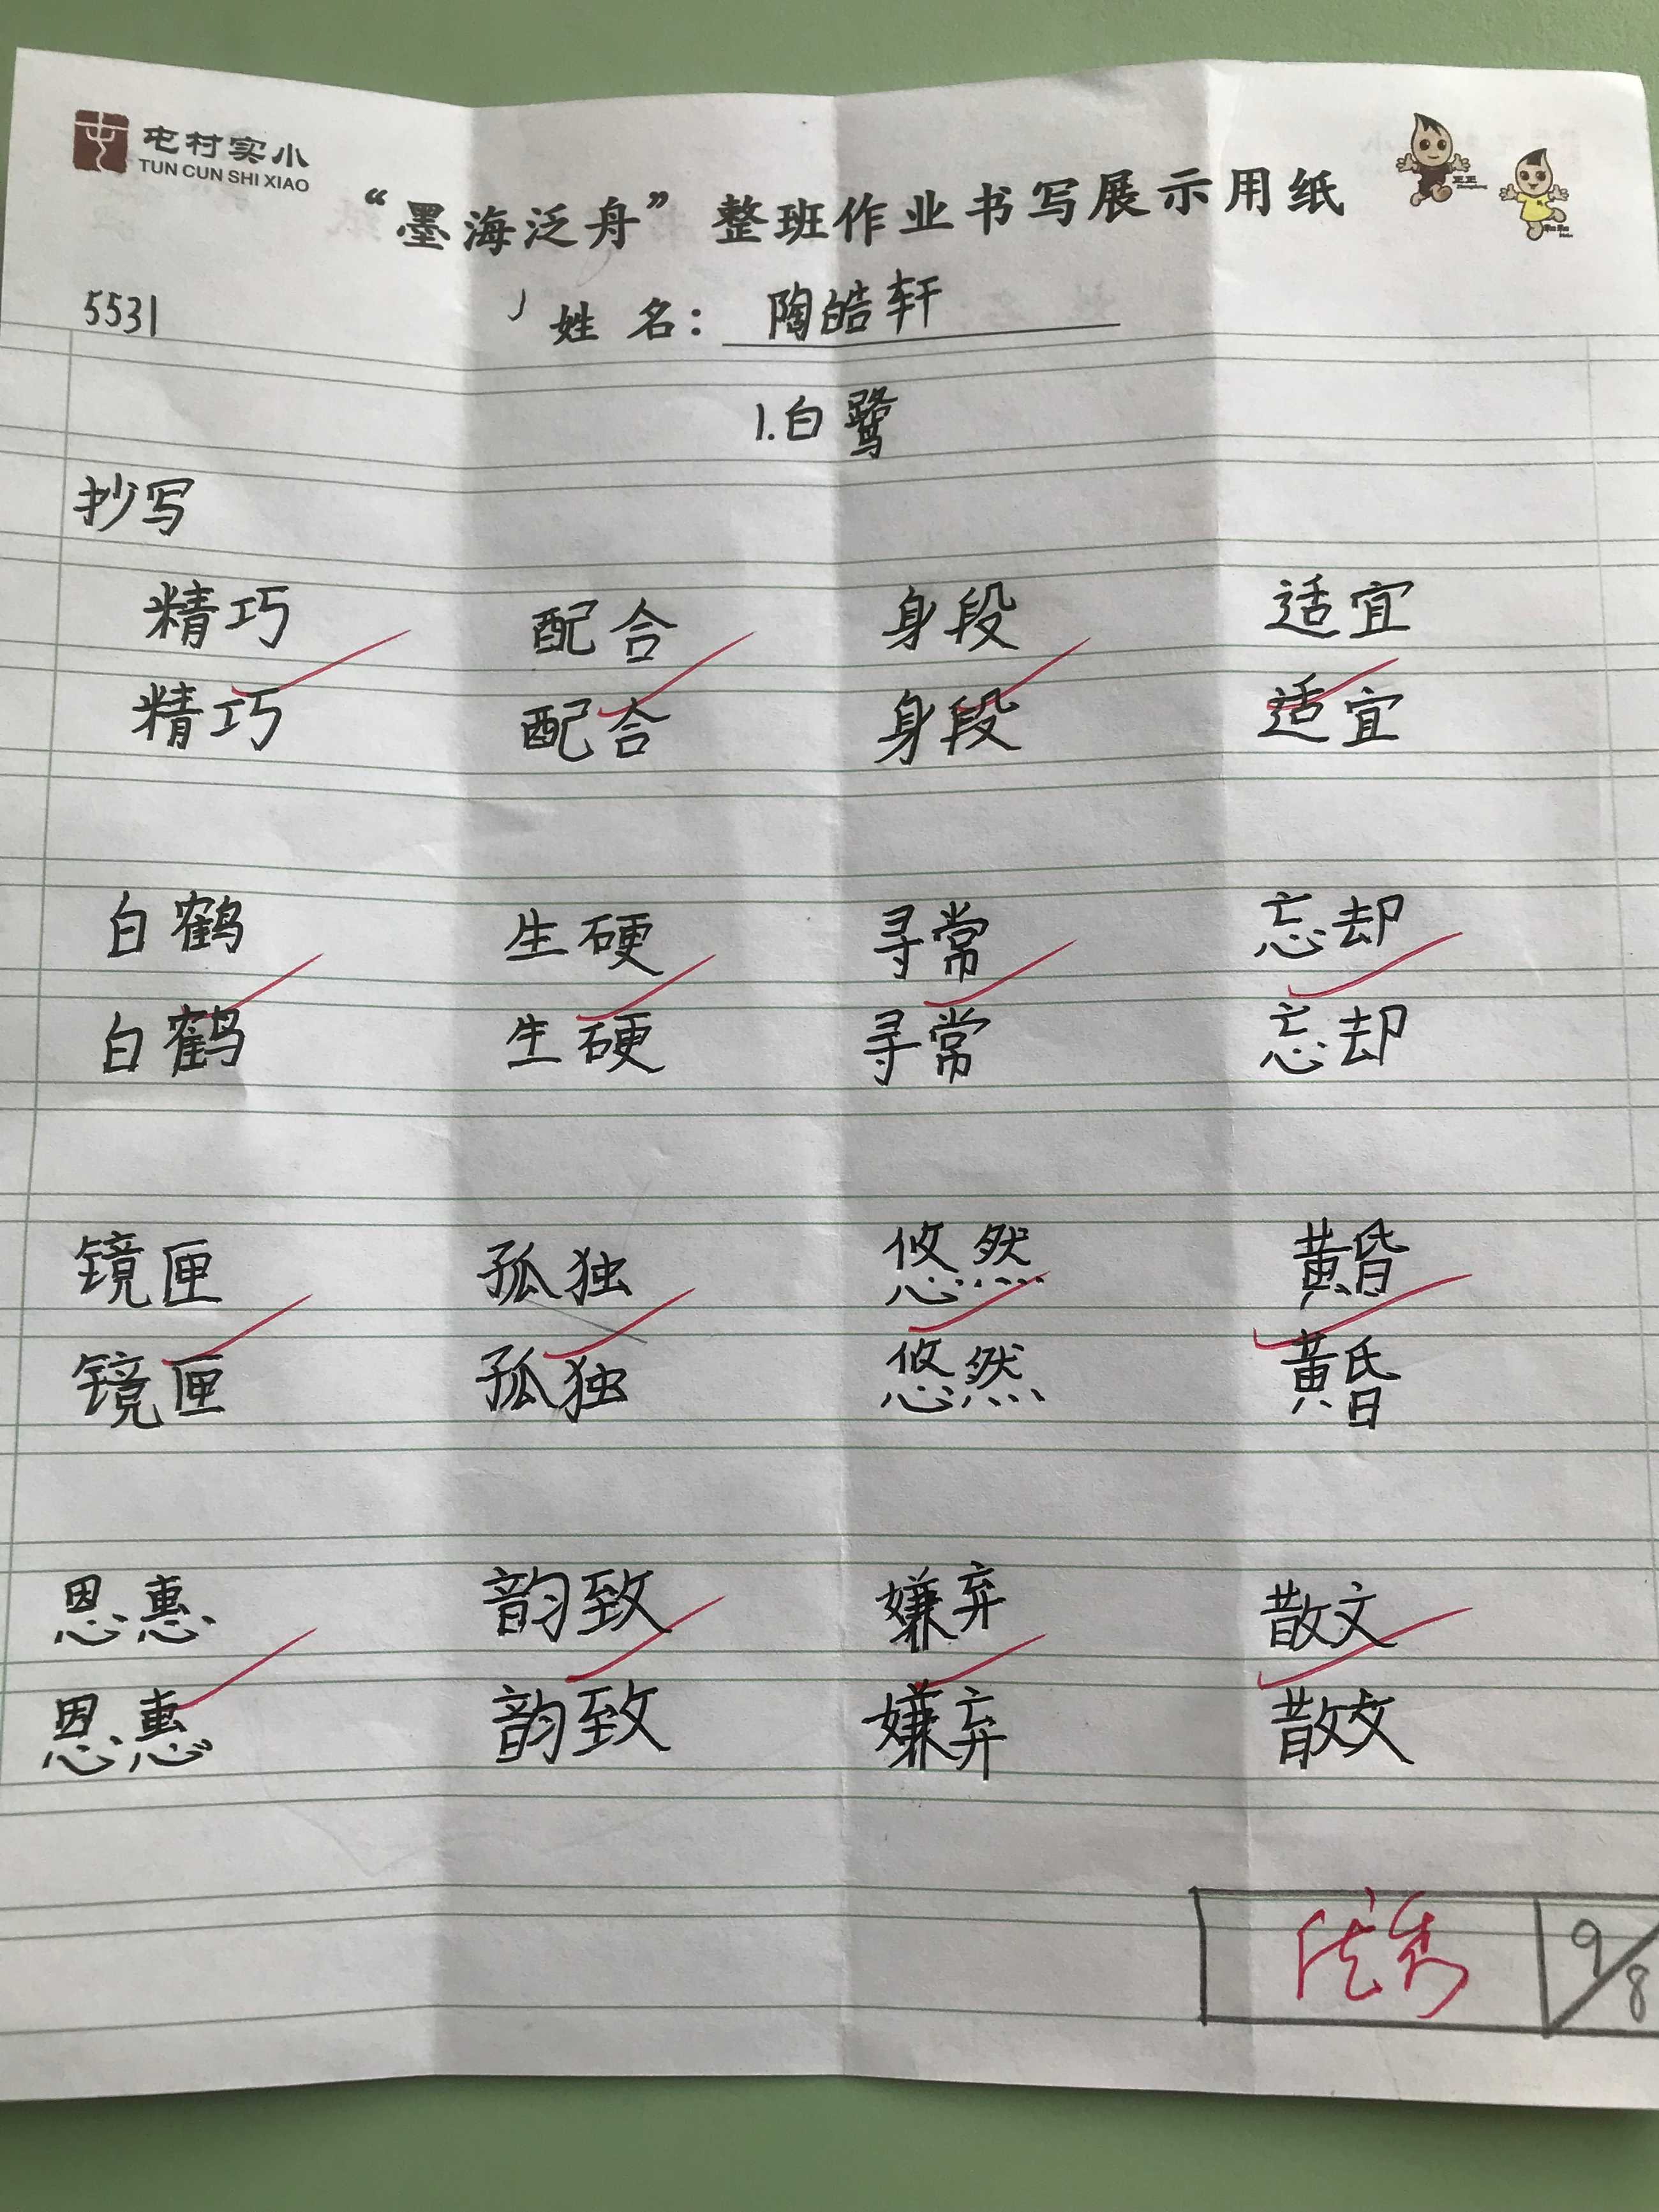 屯村实小
TUN CUN SHI XIAO
“墨海泛舟”整班作业书写展示用纸
5531 姓名：陶皓轩
1.白鹭
抄写
精巧 配合 身段 适宜
精巧 配合 身段 适宜
白鹤 生硬 寻常 忘却
白鹤 生硬 寻常 忘却
镜匣 孤独 悠然 黄昏
镜匣 孤独 悠然 黄昏
恩惠 韵致 嫌弃 散文
恩惠 韵致 嫌弃 散文
优秀 9/8